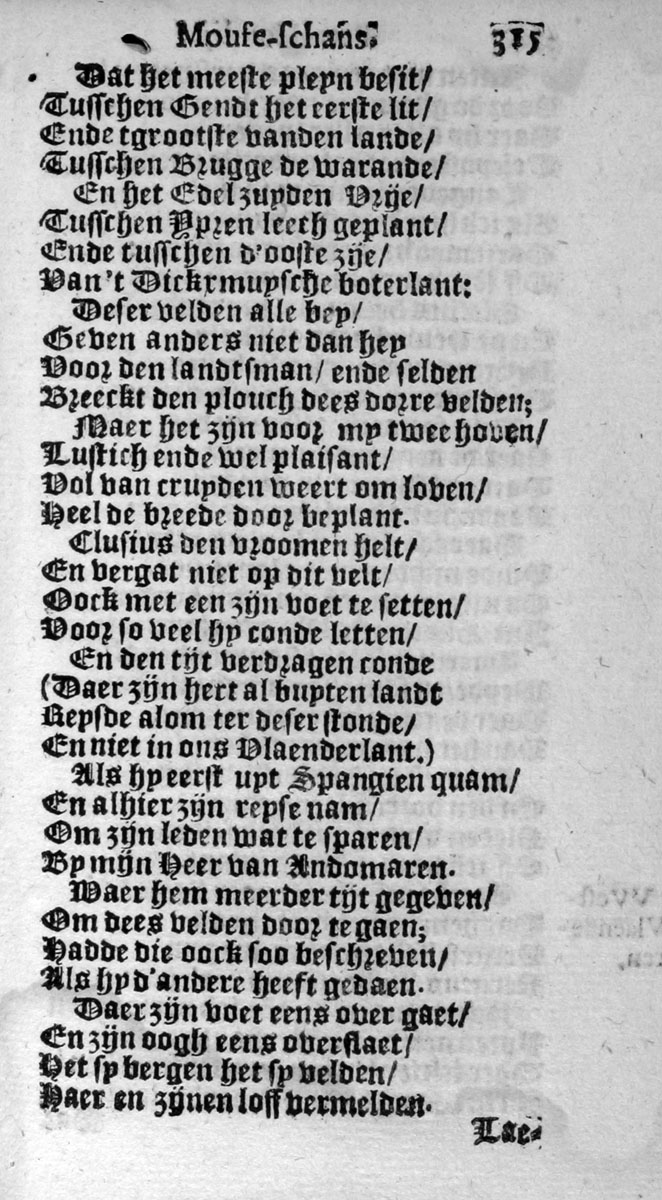 Mouſe-ſchans. 315
Dat het meeste pleyn besit/
Tusschen Gendt het eerste lit/
Ende tgrootste vanden lande/
Tusschen Brugge de warande/
En het Edel zuyden Vrije/
Tusschen Ypren leech geplant/
Ende tusschen d'ooste zije/
Van't Dickxmuysche boterlant:
Deser velden alle bey/
Geven anders niet dan hey
Voor den landtsman/ ende selden
Breeckt den plouch dees dorre velden;
Maer het zijn voor my twee hoven/
Lustich ende wel plaisant/
Vol van cruyden weert om loven/
Heel de breede door beplant.
Clusius den vroomen helt/
En vergat niet op dit velt/
Oock met een zijn voet te setten/
Voor so veel hy conde letten/
En den tijt verdragen conde
(Daer zijn hert al buyten landt
Reysde alom ter deser stonde/
En niet in ons Vlaenderlant.)
Als hy eerst uyt Spangien quam/
En alhier zijn reyse nam/
Om zijn leden wat te sparen/
By mijn Heer van Andomaren.
Waer hem meerder tijt gegeven/
Om dees velden door te gaen;
Hadde die oock soo beschreven/
Als hy d'andere heeft gedaen.
Daer zijn voet eens over gaet/
En zijn oogh eens overslaet/
Het sy bergen het sy velden/
Haer en zijnen loff vermelden.
Lae-